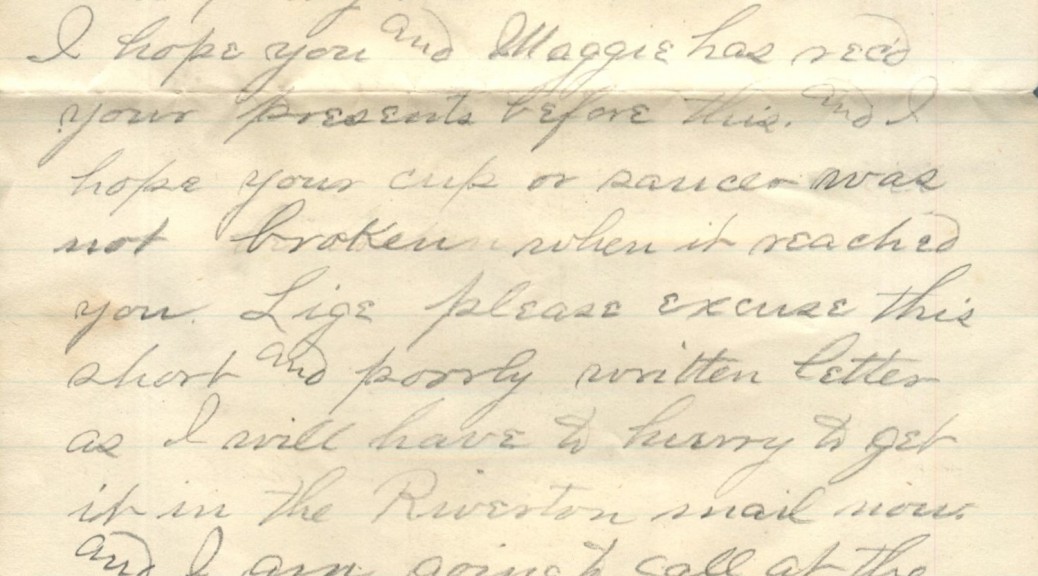 I hope you and Maggie has rec'd
your presents before this. and I
hope your cup or saucer was
not broken when it reached
you. Lige please excuse this
short and porrly written letter
as I will have to hurry to get
it in the Riverton mail now.
and I am going to call at the